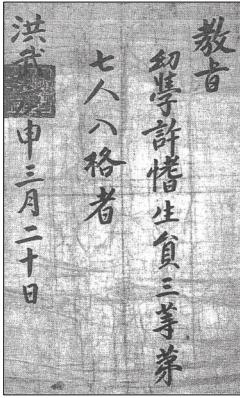 教旨
幼學許愭生員三等第
七人入格者
洪武申三月二十日